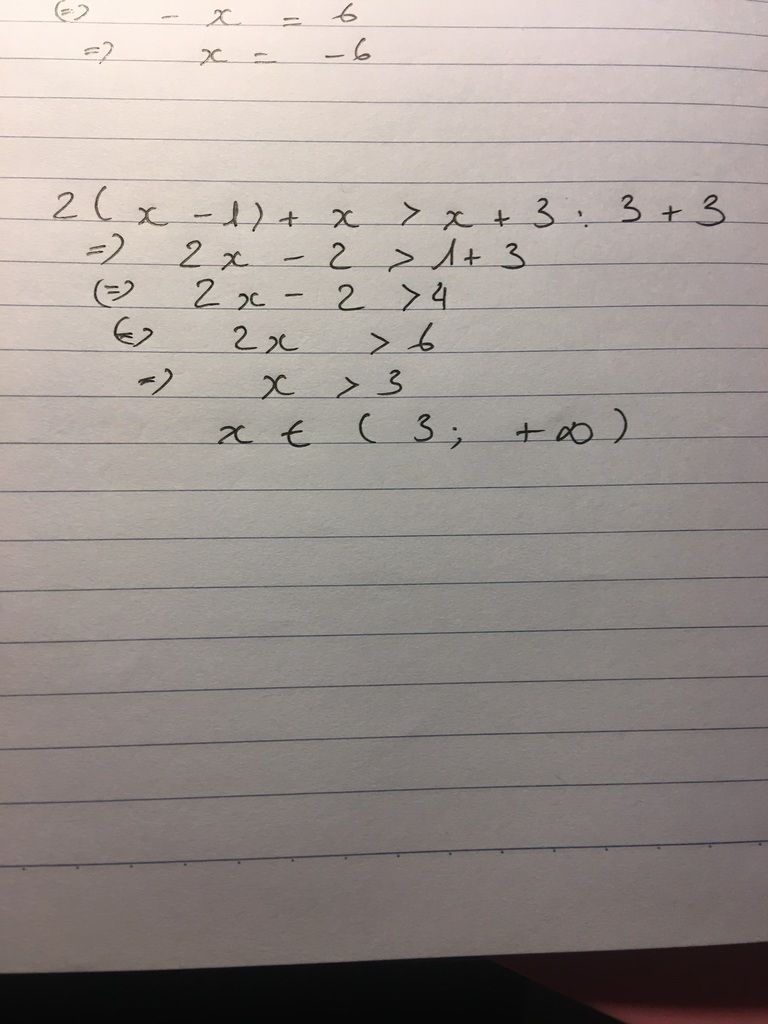 (=) - x = 6
=) x = -6
2(x - 1) + x > x + 3 : 3 + 3
=) 2x - 2 > 1 + 3
(=) 2x - 2 > 4
(=) 2x > 6
=) x > 3
x ∈ (3; +∞)